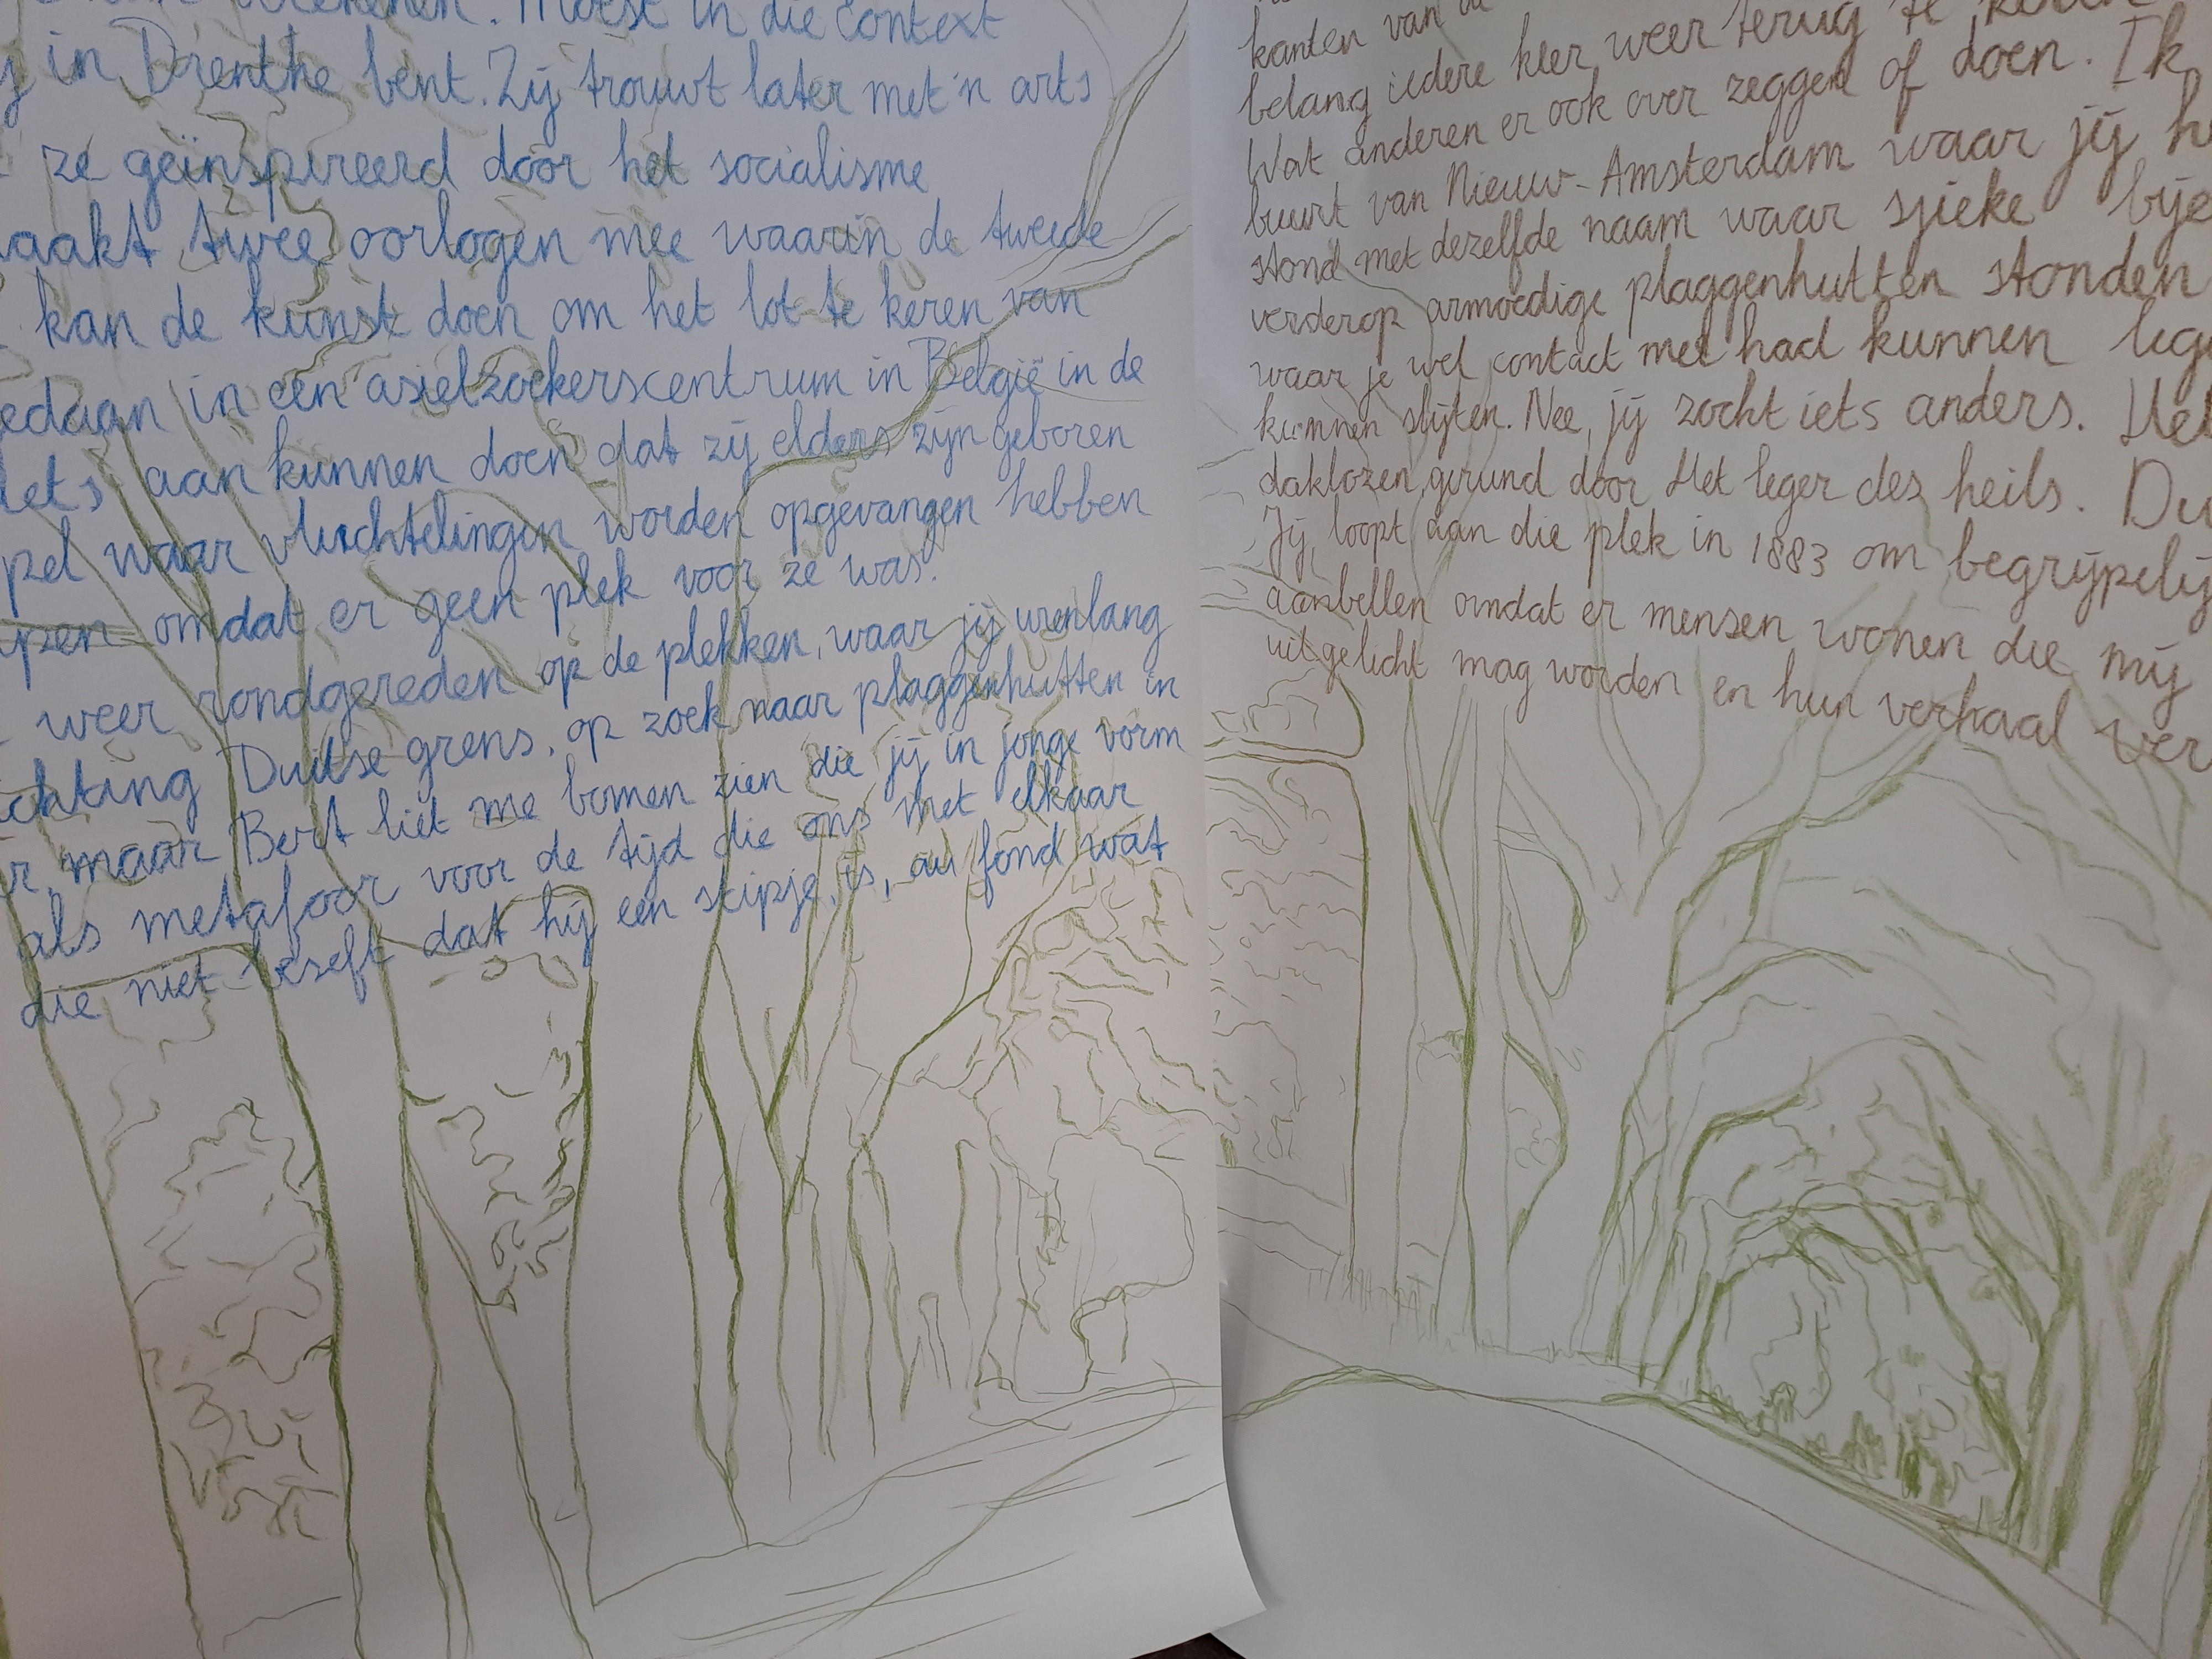 Moest in die context
in Drenthe bent. Zij trouwt later met 'n arts
ze geïnspireerd door het socialisme
aakt twee oorlogen mee waarin de tweede
kan de kunst doen om het lot te keren van
edaan in een asielzoekerscentrum in België in de
iets aan kunnen doen dat zij elders zijn geboren
pel waar vluchtelingen worden opgevangen hebben
pen omdat er geen plek voor ze was.
weer rondgereden op de plekken, waar jij urenlang
chting Duitse grens, op zoek naar plaggenhutten in
r, maar Bert liet me bomen zien die jij in jonge vorm
als metafoor voor de tijd die ons met elkaar
die niet beseft dat hij een stipje is, au fond wat
kanten van
belang iedere keer weer terug te
Wat anderen er ook over zeggen of doen. Ik
buurt van Nieuw-Amsterdam waar jij h
stond met dezelfde naam waar sjieke bije
verderop armoedige plaggenhutten stonden
waar je wel contact met had kunnen leg
kunnen slijten. Nee, jij zocht iets anders. Het
daklozen, gerund door Het leger des heils. Du
Jij loopt aan die plek in 1883 om begrijpelij
aanbellen omdat er mensen wonen die mij
uitgelicht mag worden en hun verhaal ver